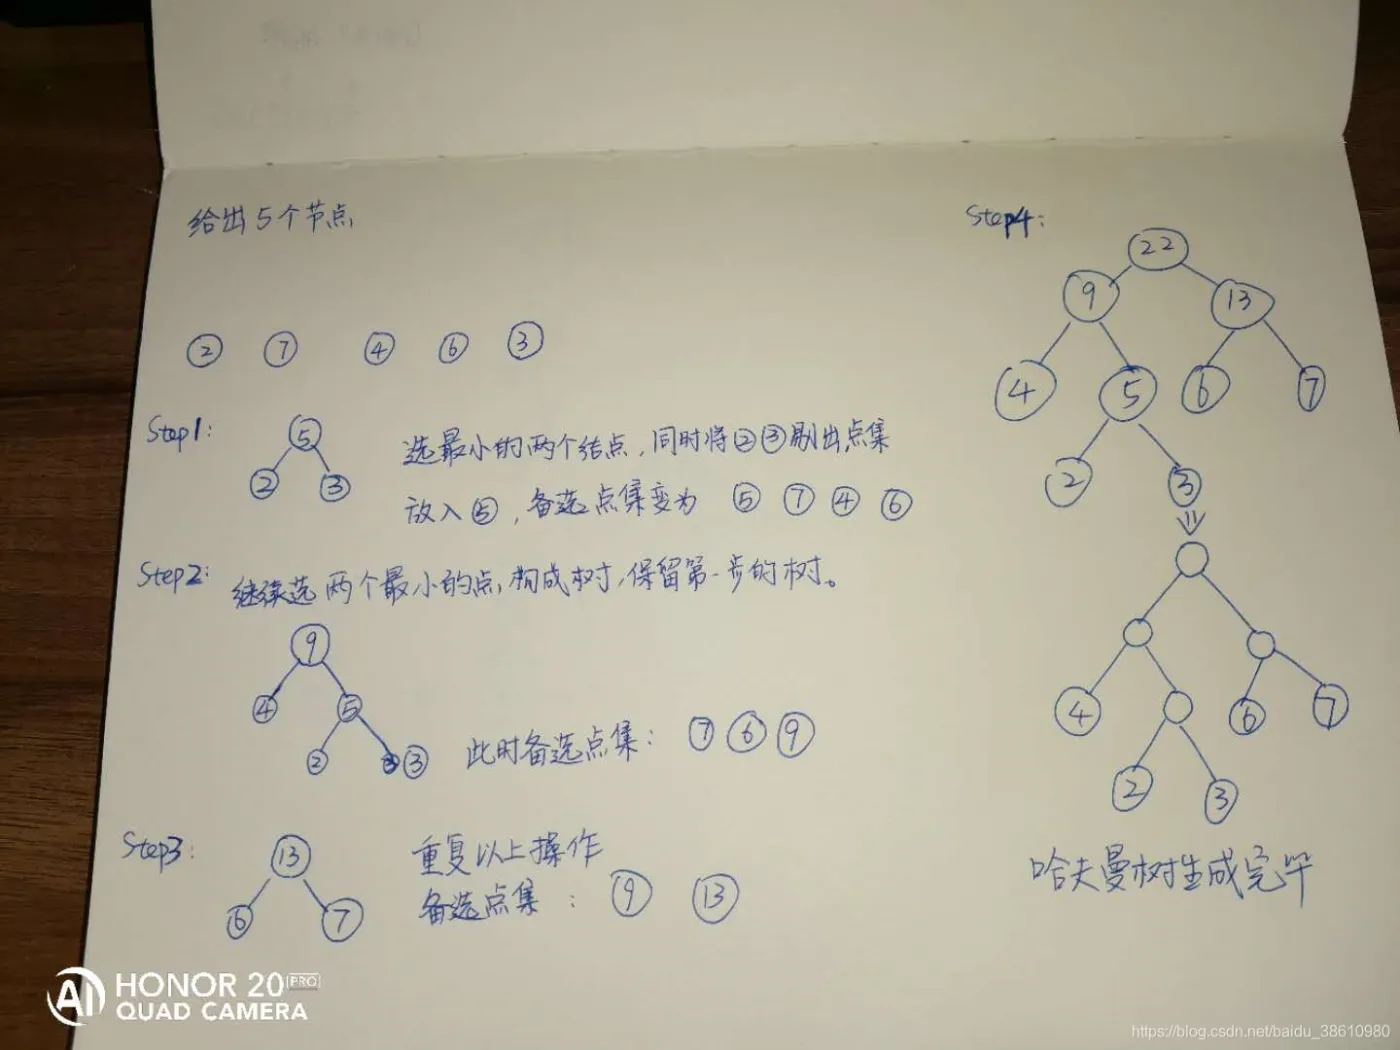 给出5个节点
② ⑦ ④ ⑥ ③
Step1:
5
2 3
选最小的两个结点,同时将②③剔出点集
放入⑤,备选点集变为 ⑤ ⑦ ④ ⑥
Step2: 继续选两个最小的点,构成树,保留第一步的树。
9
4 5
2 3
此时备选点集: ⑦ ⑥ ⑨
Step3:
13
6 7
重复以上操作
备选点集: ⑨ ⑬
Step4:
22
9 13
4 5 6 7
2 3
4 6 7
2 3
哈夫曼树生成完毕
AI HONOR 20 PRO
QUAD CAMERA
https://blog.csdn.net/baidu_38610980